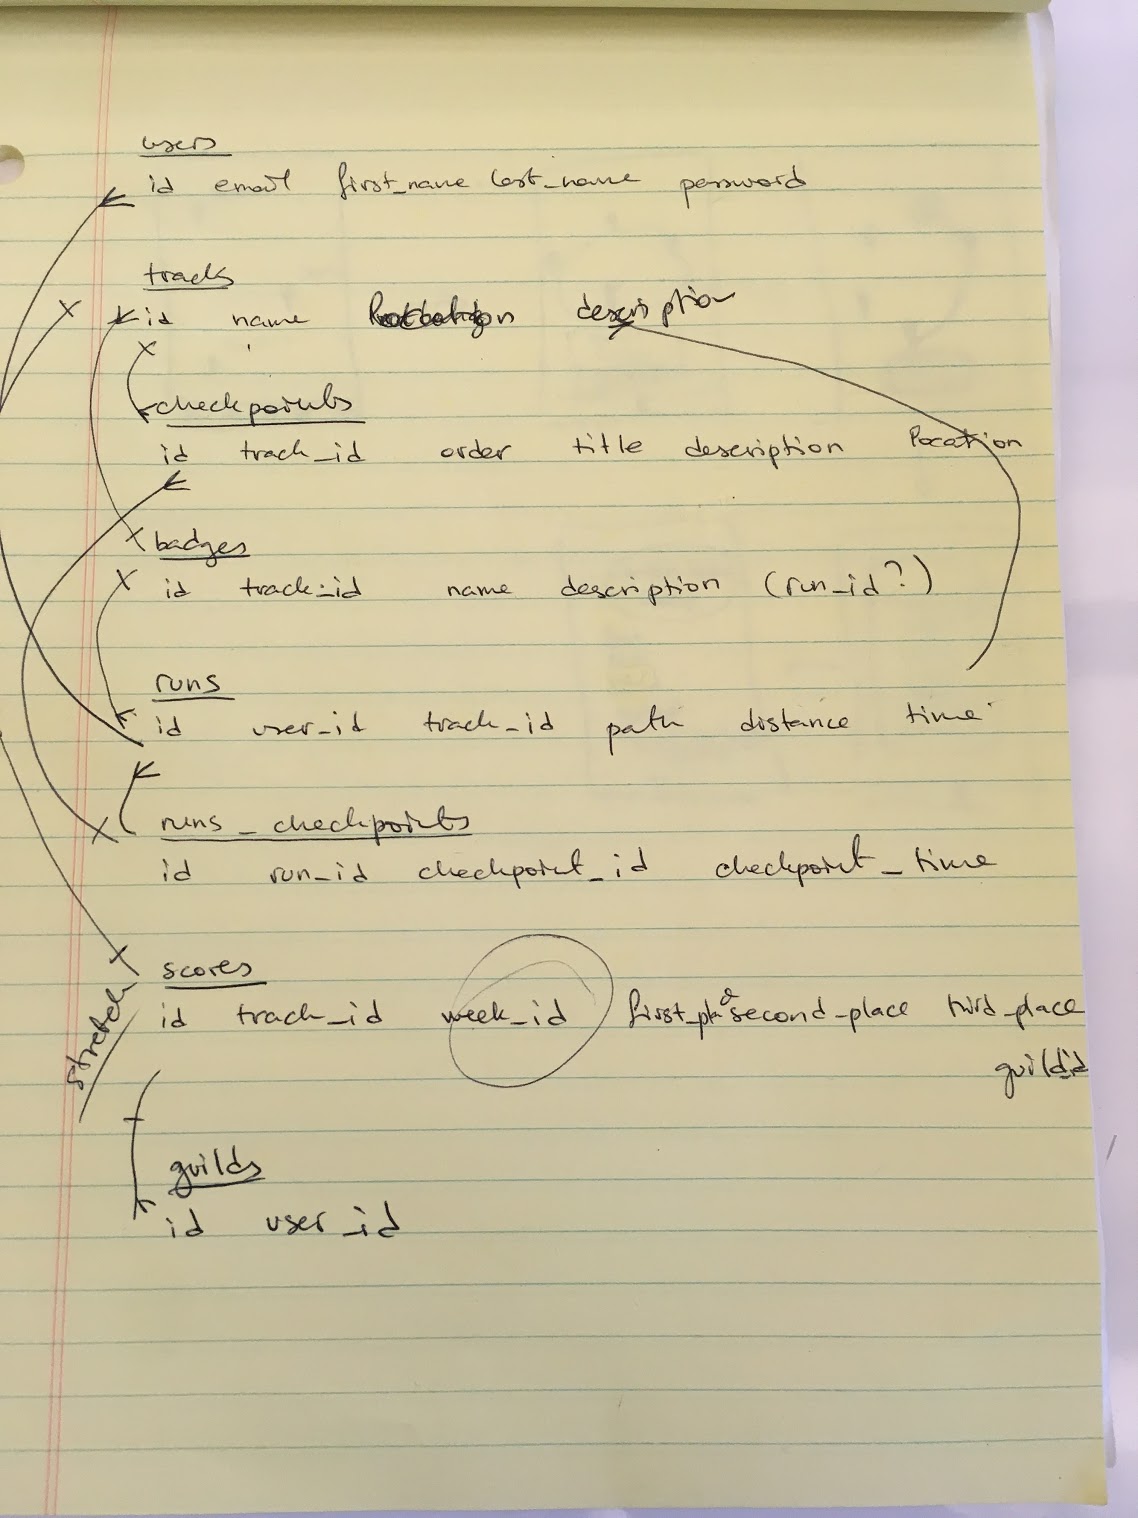 users
id email first_name last_name password
tracks
id name description
checkpoints
id track_id order title description location
badges
id track_id name description (run_id?)
runs
id user_id track_id path distance time
runs_checkpoints
id run_id checkpoint_id checkpoint_time
scores
stretch
id track_id week_id second_place third_place
guilds
id user_id